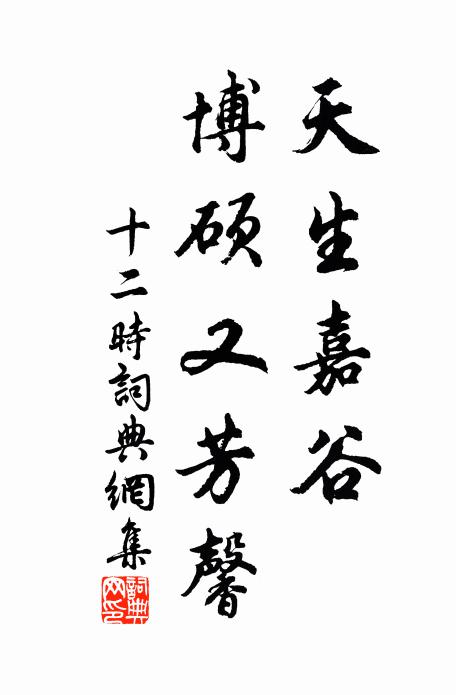 天生嘉谷
博硕又芳馨
十二時詞典網集
詞典
网印